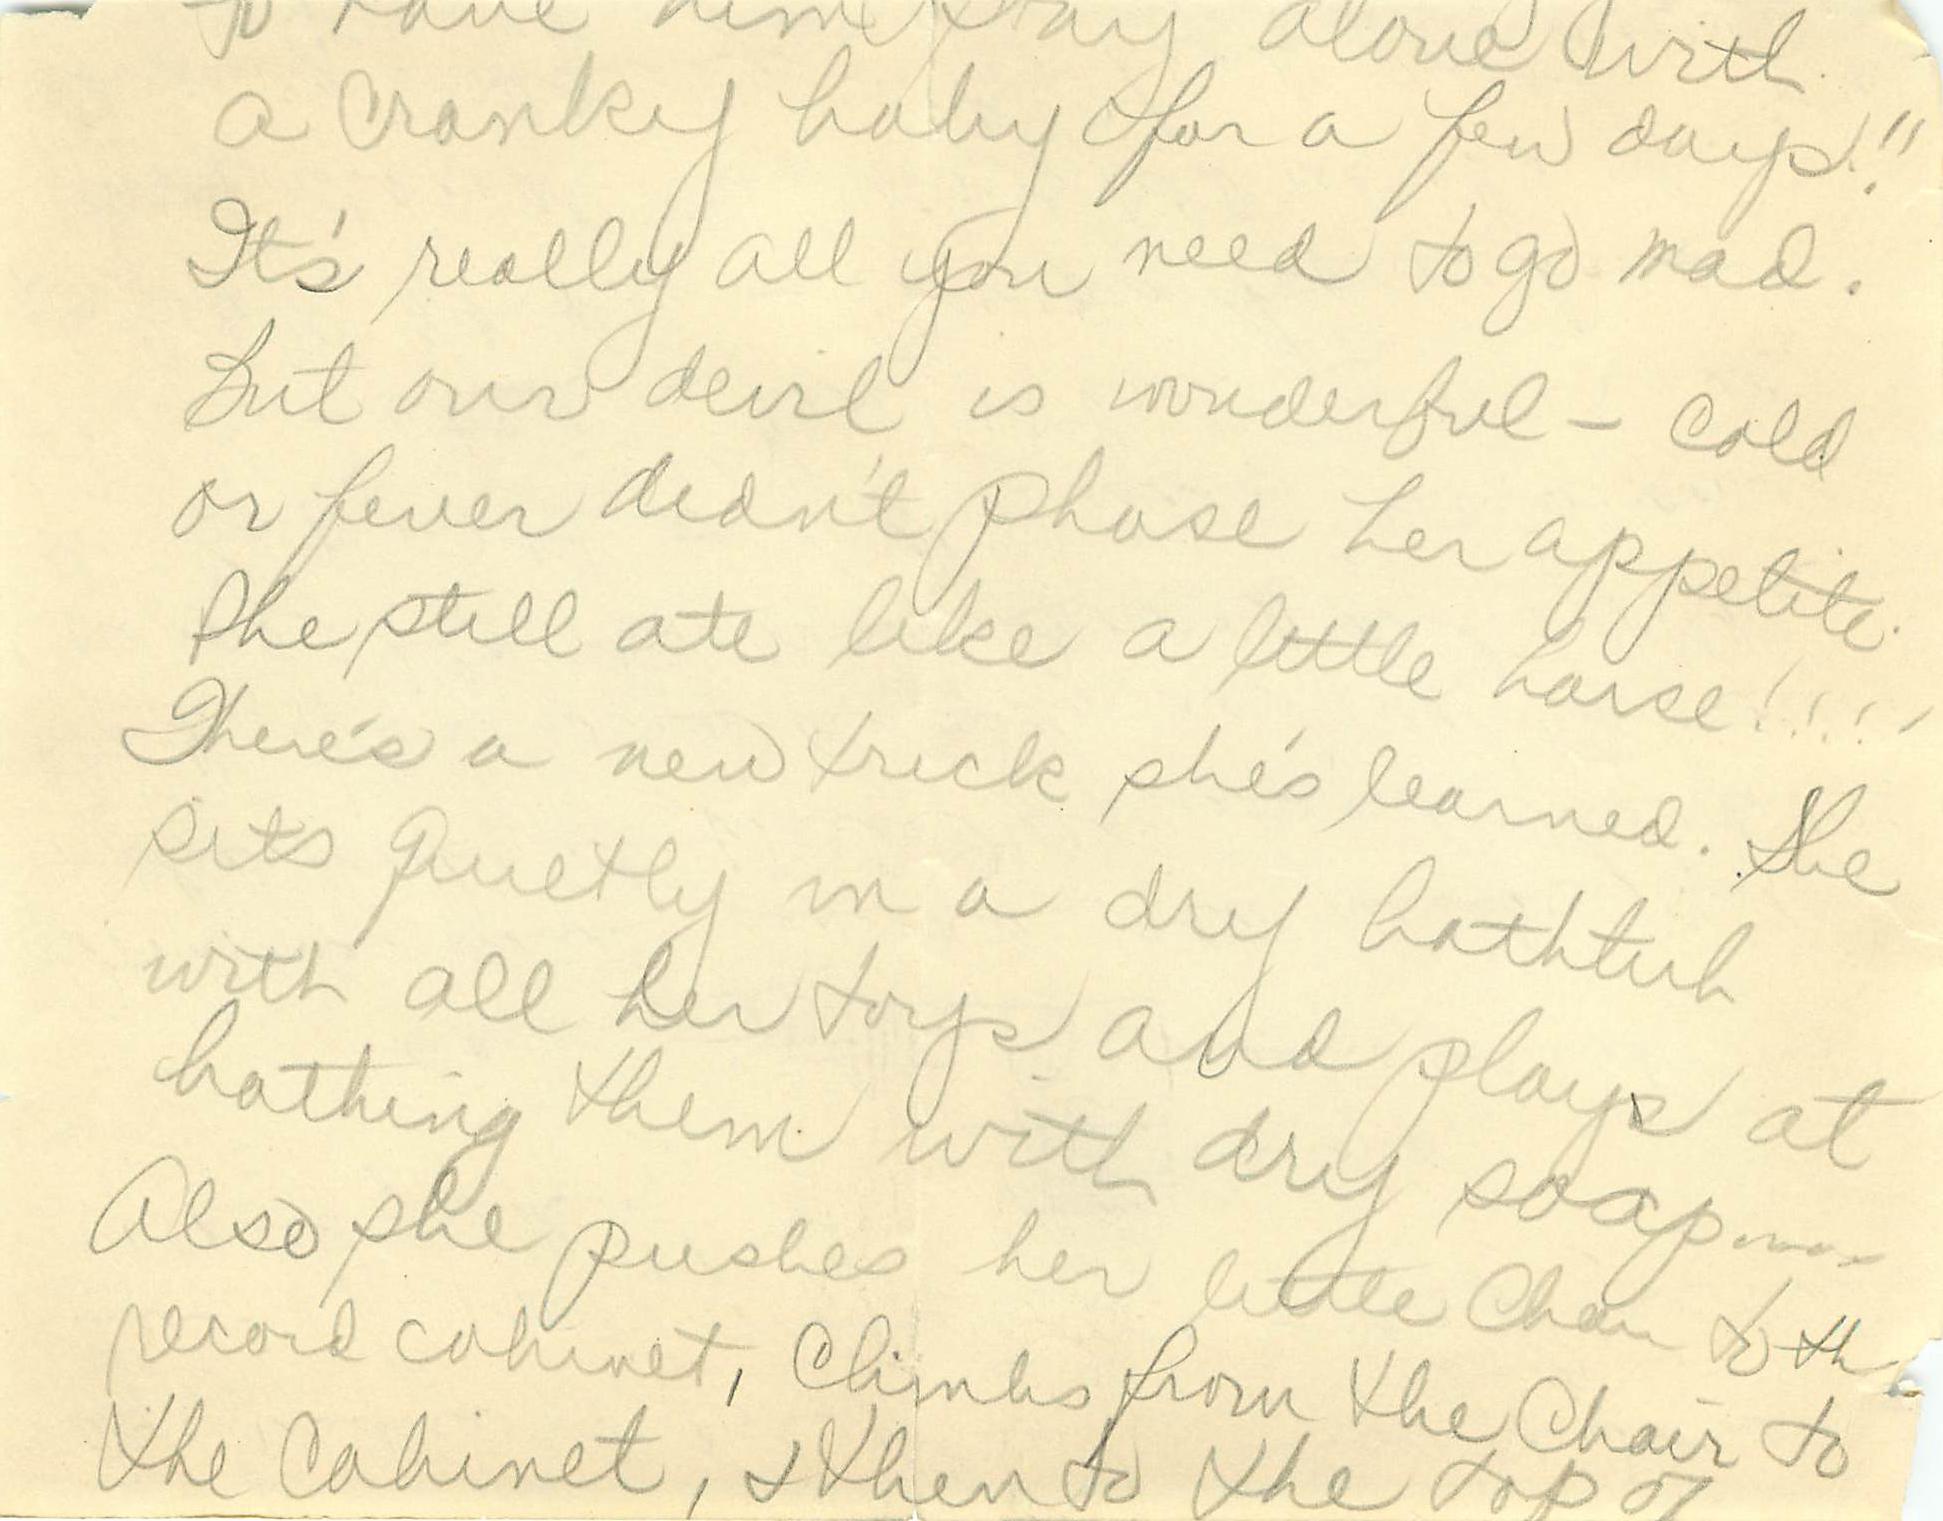 to have him stay alone with
a cranky baby for a few days!!
It's really all you need to go mad.
But our devil is wonderful - cold
or fever didn't phase her appetite.
She still ate like a little horse!!!!!
There's a new trick she's learned. She
sits quietly in a dry bathtub
with all her toys and plays at
bathing them with dry soap....
Also she pushes her little chair to th
record cabinet, climbs from the chair to
the cabinet, & then to the top of